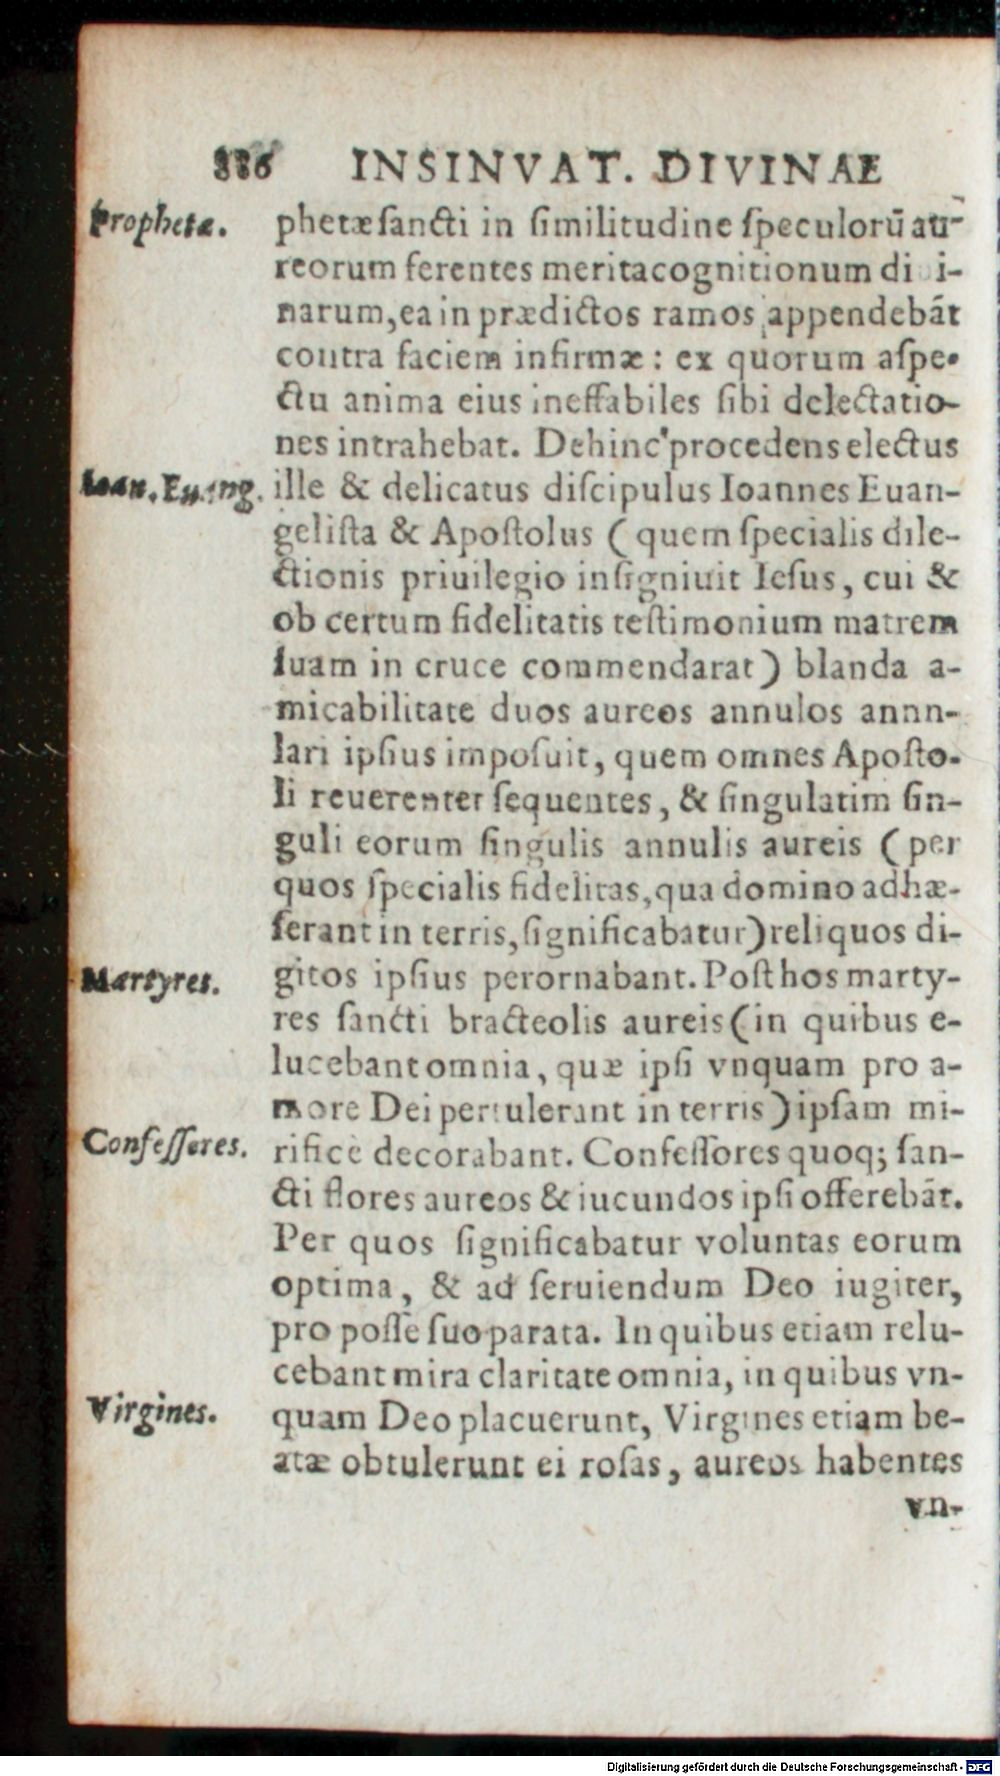 886 INSINVAT. DIVINAE
Prophetæ.
phetæ ſancti in ſimilitudine ſpeculorū au-
reorum ferentes merita cognitionum di i-
narum, ea in prædictos ramos appendebāt
contra faciem infirmæ : ex quorum aſpe-
ctu anima eius ineffabiles ſibi delectatio-
nes intrahebat. Dehinc procedens electus
Ioan. Euang.
ille & delicatus diſcipulus Ioannes Euan-
geliſta & Apoſtolus ( quem ſpecialis dile-
ctionis priuilegio inſigniuit Ieſus, cui &
ob certum fidelitatis teſtimonium matrem
ſuam in cruce commendarat) blanda a-
micabilitate duos aureos annulos annn-
lari ipſius impoſuit, quem omnes Apoſto-
li reuerenter ſequentes, & ſingulatim ſin-
guli eorum ſingulis annulis aureis ( per
quos ſpecialis fidelitas, qua domino adhæ-
ſerant in terris, ſignificabatur) reliquos di-
Martyres.
gitos ipſius perornabant. Poſt hos marty-
res ſancti bracteolis aureis (in quibus e-
lucebant omnia, quæ ipſi vnquam pro a-
more Dei pertulerant in terris) ipſam mi-
Confeſſores.
rificè decorabant. Confeſſores quoq; ſan-
cti flores aureos & iucundos ipſi offerebāt.
Per quos ſignificabatur voluntas eorum
optima, & ad ſeruiendum Deo iugiter,
pro poſſe ſuo parata. In quibus etiam relu-
cebant mira claritate omnia, in quibus vn-
Virgines.
quam Deo placuerunt, Virgines etiam be-
atæ obtulerunt ei roſas, aureos habentes
vn-
Digitalisierung gefördert durch die Deutsche Forschungsgemeinschaft - DFG